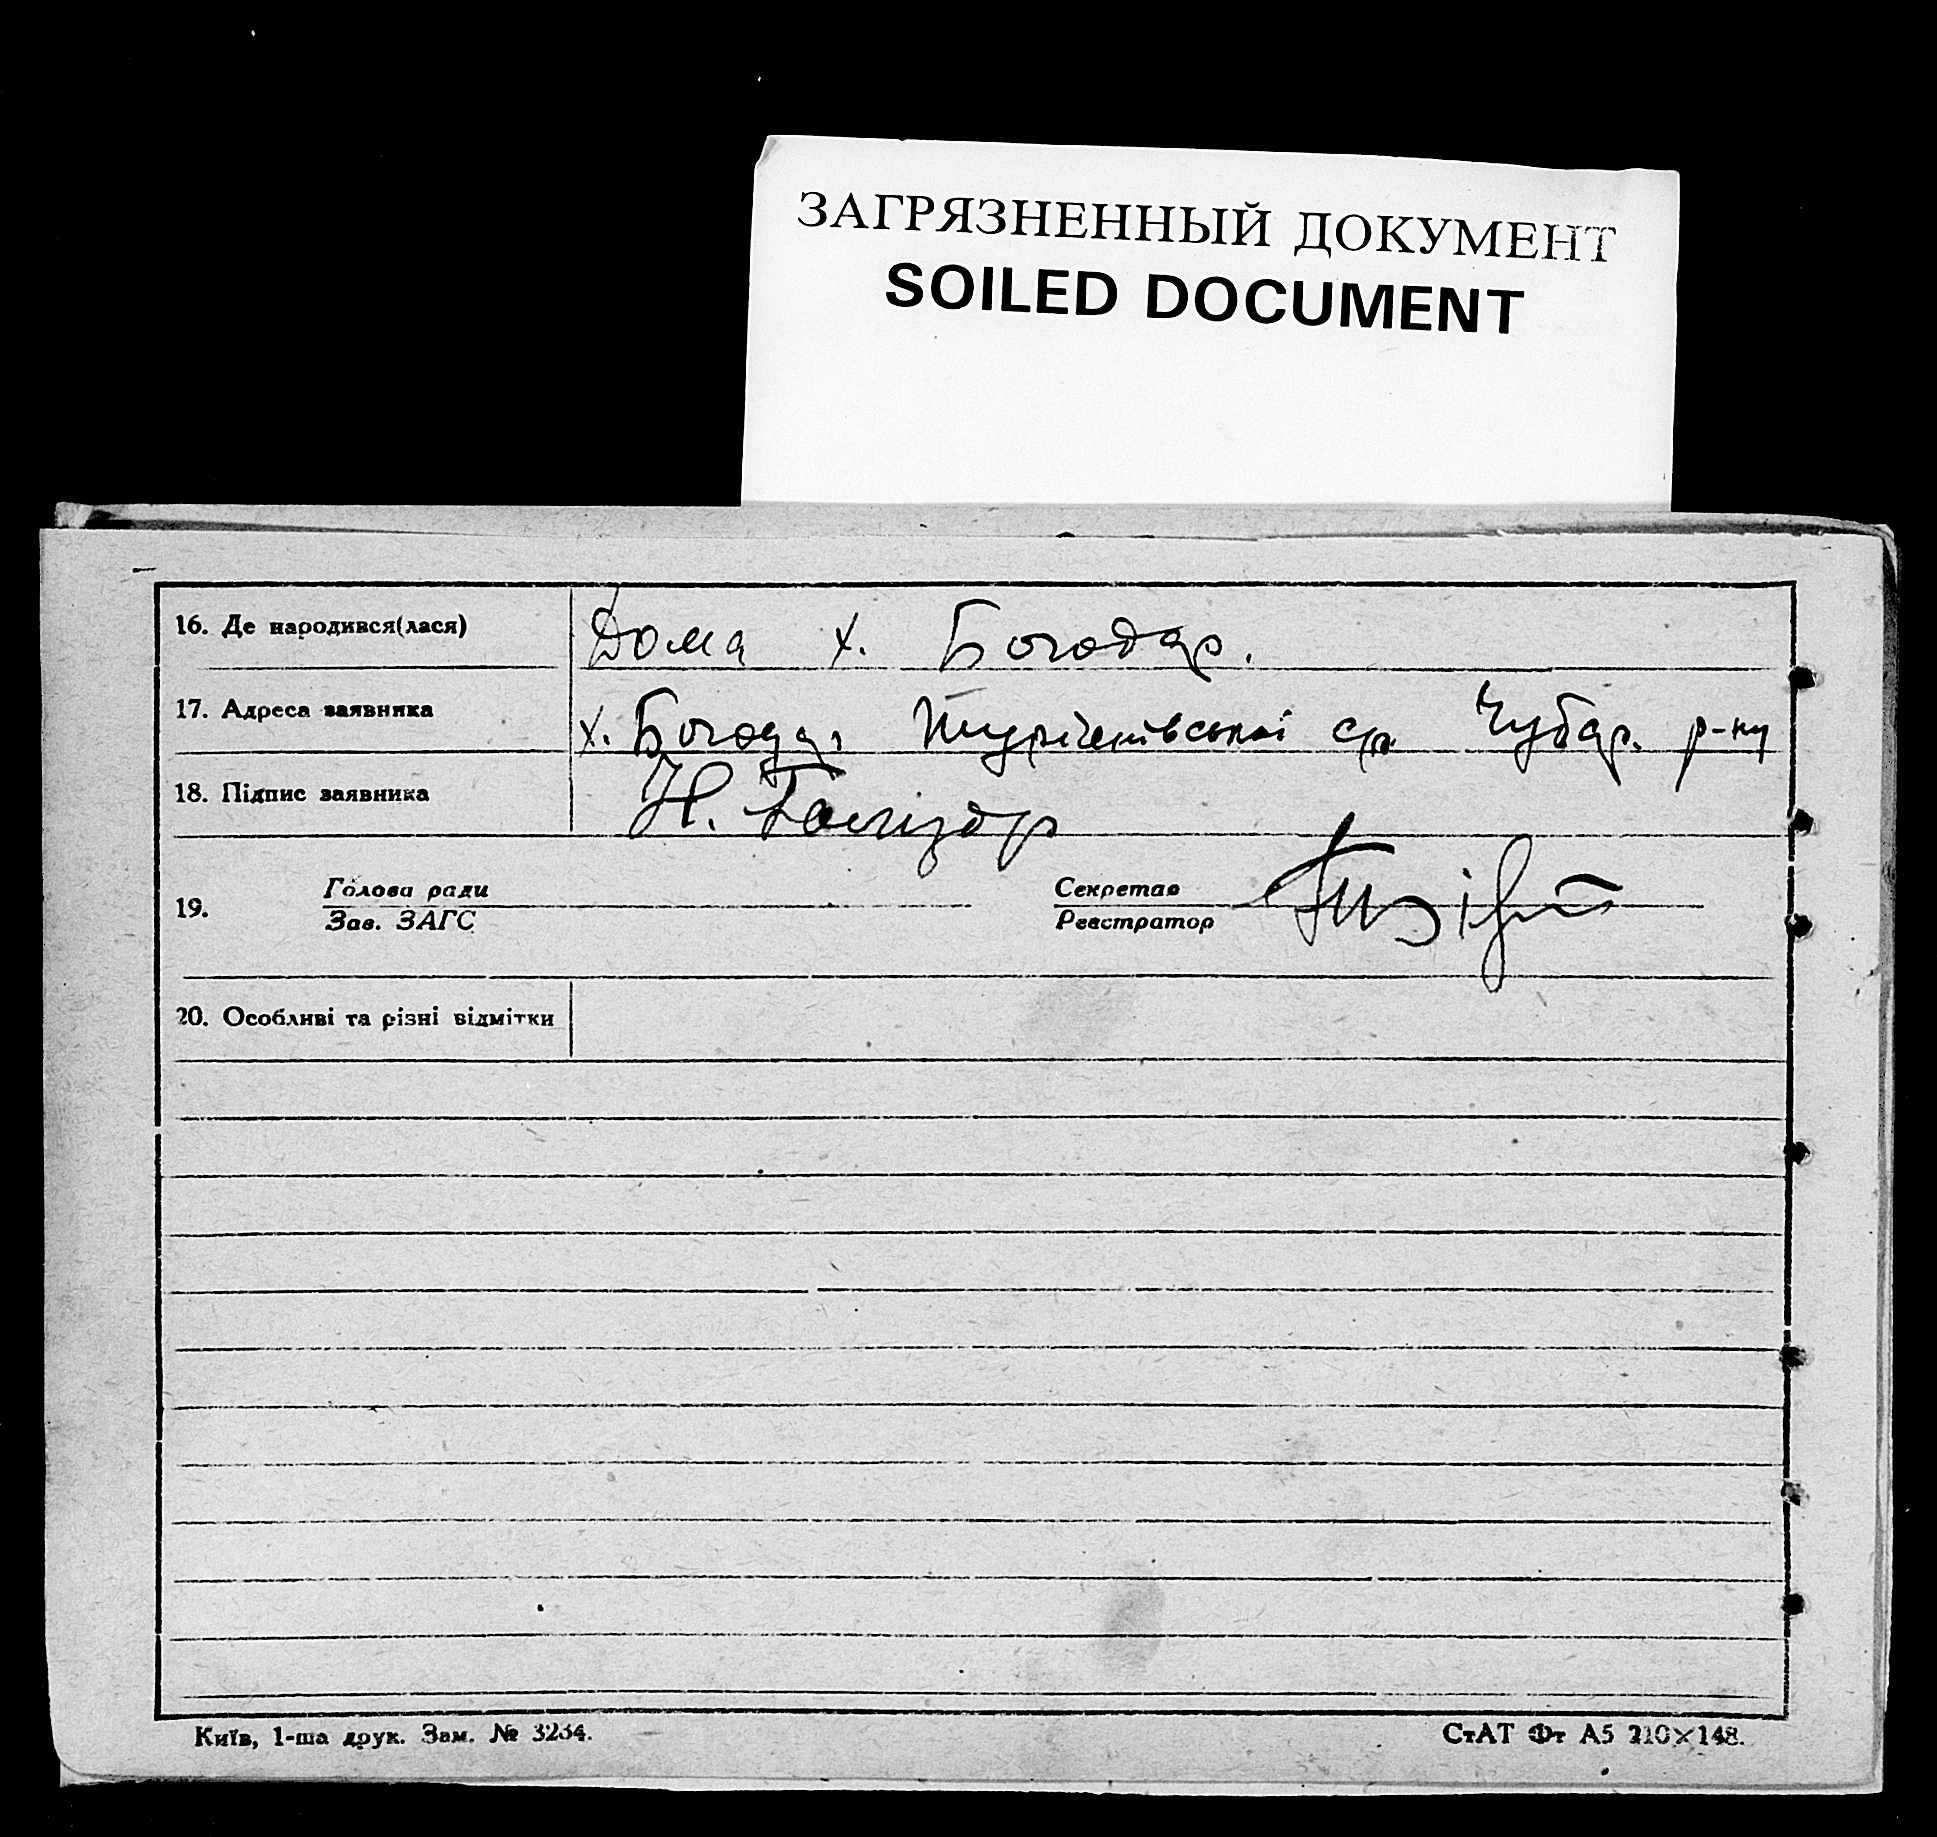 ЗАГРЯЗНЕННЫЙ ДОКУМЕНТ
SOILED DOCUMENT
16. Де народився(лася) Дома х. Богодар.
17. Адреса заявника х. Богода, ср. Чубар. р-ну
18. Підпис заявника Н.
19. Голова ради Секретар
Зав. ЗАГС Реєстратор
20. Особливі та різні відмітки
Київ, 1-ша друк. Зам. № 3234. СтАТ Фт А5 210×148.